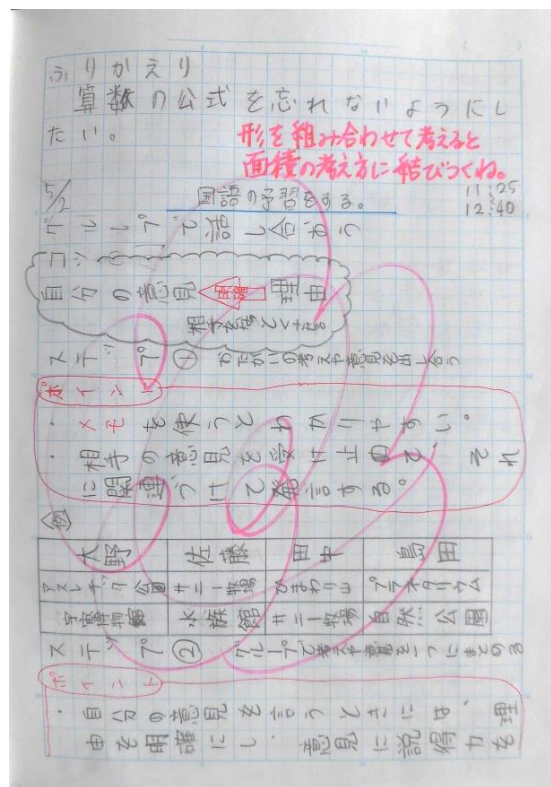 ふりかえり
算数の公式を忘れないようにし
たい。
形を組み合わせて考えると
面積の考え方に結びつくね。
5/2
国語の予習をする。
11:25
12:40
グループで話し合おう
コツ
自分の意見
理由
ステップ① おたがいの考えや意見を出し合う
ポイント
・メモを使うとわかりやすい。
・相手の意見を受け止めて、それ
に関連づけて発言する。
例
大野 佐藤 田中 島田
アスレチック公園 サニー牧場 ひまわり山 プラネタリウム
宇宙博物館 水族館 サニー牧場 自然公園
ステップ② グループで考えや意見を一つにまとめる
ポイント
・自分の意見を言うときには、理
由を明確にし、意見に説得力を